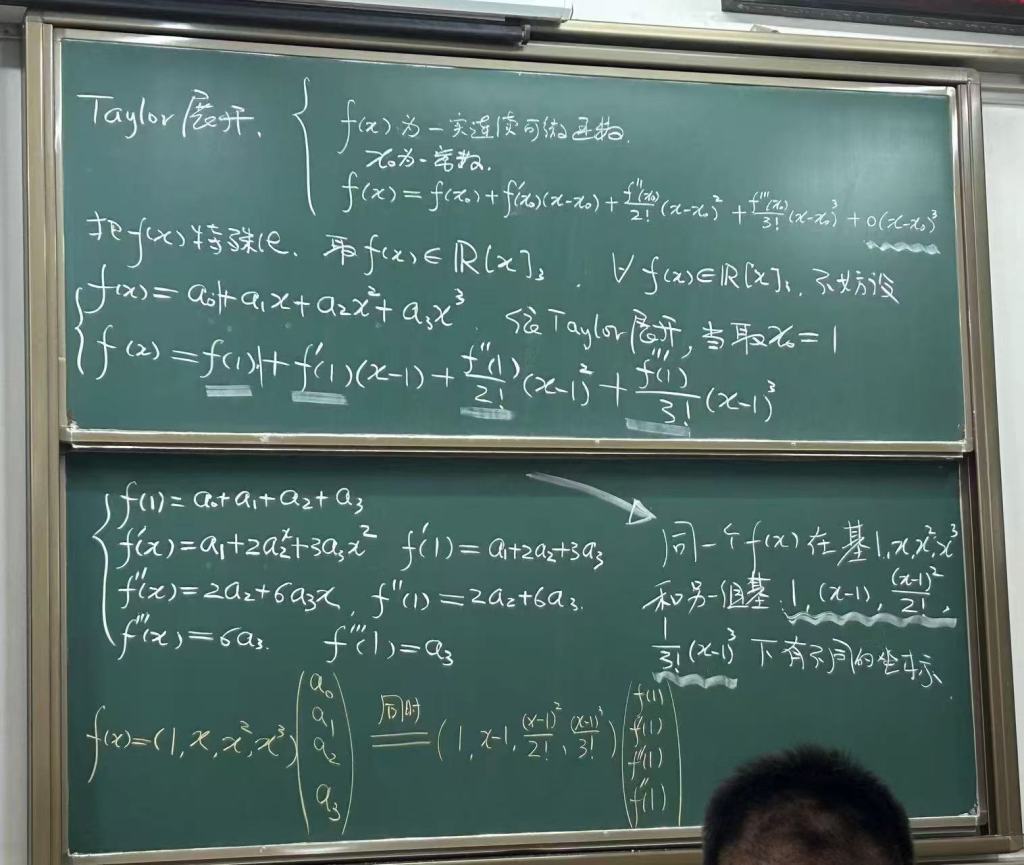 Taylor展开.
f(x)为一实连续可微函数.
x₀为一常数.
f(x) = f(x₀) + f'(x₀)(x-x₀) + f''(x₀)/2! (x-x₀)² + f'''(x₀)/3! (x-x₀)³ + o(x-x₀)³
把f(x)特殊化. 取f(x)∈ℝ[x]₃. ∀ f(x)∈ℝ[x]₃. 不妨设
f(x) = a₀ + a₁x + a₂x² + a₃x³. 经Taylor展开, 当取x₀ = 1
f(2) = f(1) + f'(1)(x-1) + f''(1)/2! (x-1)² + f'''(1)/3! (x-1)³
f(1) = a₀+a₁+a₂+a₃
f'(x) = a₁+2a₂x+3a₃x² f'(1) = a₁+2a₂+3a₃
f''(x) = 2a₂+6a₃x, f''(1) = 2a₂+6a₃.
f'''(x) = 6a₃. f'''(1) = a₃
同一个f(x)在基1, x, x², x³
和另一组基 1, (x-1), (x-1)²/2!,
1/3! (x-1)³ 下有不同的坐标.
f(x) = (1, x, x², x³) (a₀ a₁ a₂ a₃) 同时 = (1, x-1, (x-1)²/2!, (x-1)³/3!) (f(1) f'(1) f''(1) f'''(1))